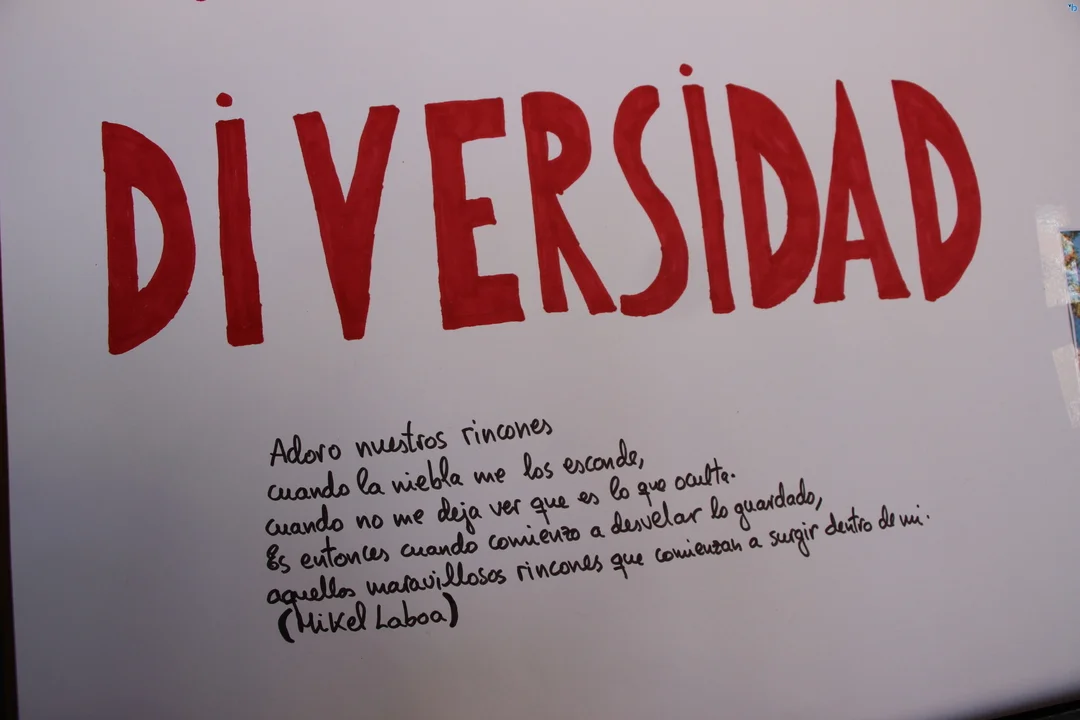 DiVERSiDAD
Adoro nuestros rincones
cuando la niebla me los esconde,
cuando no me deja ver que es lo que oculta.
Es entonces cuando comienzo a desvelar lo guardado,
aquellos maravillosos rincones que comienzan a surgir dentro de mi.
(Mikel Laboa)